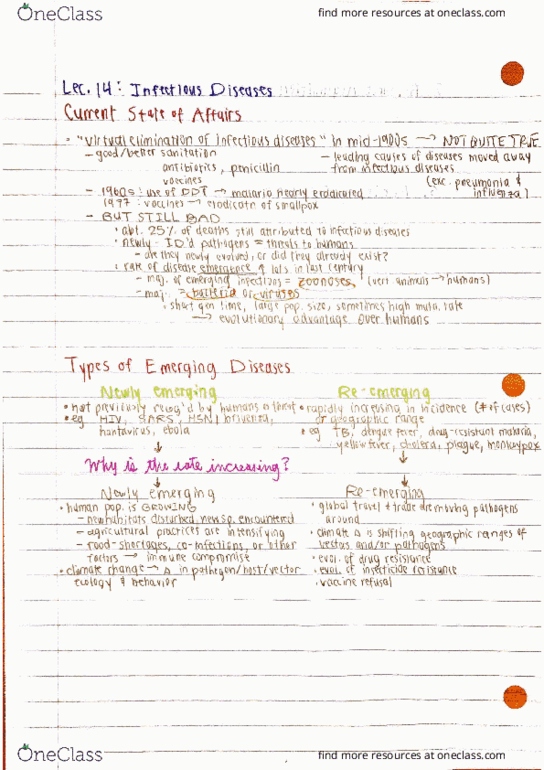 OneClass
find more resources at oneclass.com
Lec. 14: Infectious Diseases
Current State of Affairs
• "virtual elimination of infectious diseases" in mid-1900s → NOT QUITE TRUE
– good/better sanitation
– leading causes of diseases moved away
antibiotics, penicillin
from infectious diseases
vaccines
(exc. pneumonia &
influenza)
– 1960s: use of DDT → malaria nearly eradicated
1977: vaccines → eradicate of smallpox
– BUT STILL BAD
• abt. 25% of deaths still attributed to infectious diseases
• newly-ID'd pathogens = threats to humans
– are they newly evolved, or did they already exist?
• rate of disease emergence ↑ lots in last century
– maj. of emerging infections = zoonoses (vert animals → humans)
– maj. = bacteria or viruses
• short gen time, large pop. size, sometimes high muta. rate
→ evolutionary advantage over humans
Types of Emerging Diseases
Newly emerging
Re-emerging
• not previously recog'd by humans as threat
• rapidly increasing in incidence (# of cases)
or geographic range
• eg HIV, SARS, H5N1 influenza,
hantavirus, ebola
• eg TB, dengue fever, drug-resistant malaria,
yellow fever, cholera, plague, monkeypox
Why is the rate increasing?
Newly emerging
Re-emerging
• human pop. is GROWING
– new habitats disturbed, new sp. encountered
– agricultural practices are intensifying
– food-shortages, co-infections, or other
factors → immune compromise
• climate change → Δ in pathogen/host/vector
ecology & behavior
• global travel & trade are moving pathogens
around
• climate Δ is shifting geographic ranges of
vectors and/or pathogens
• evol. of drug resistance
• evol. of insecticide resistance
• vaccine refusal
OneClass
find more resources at oneclass.com